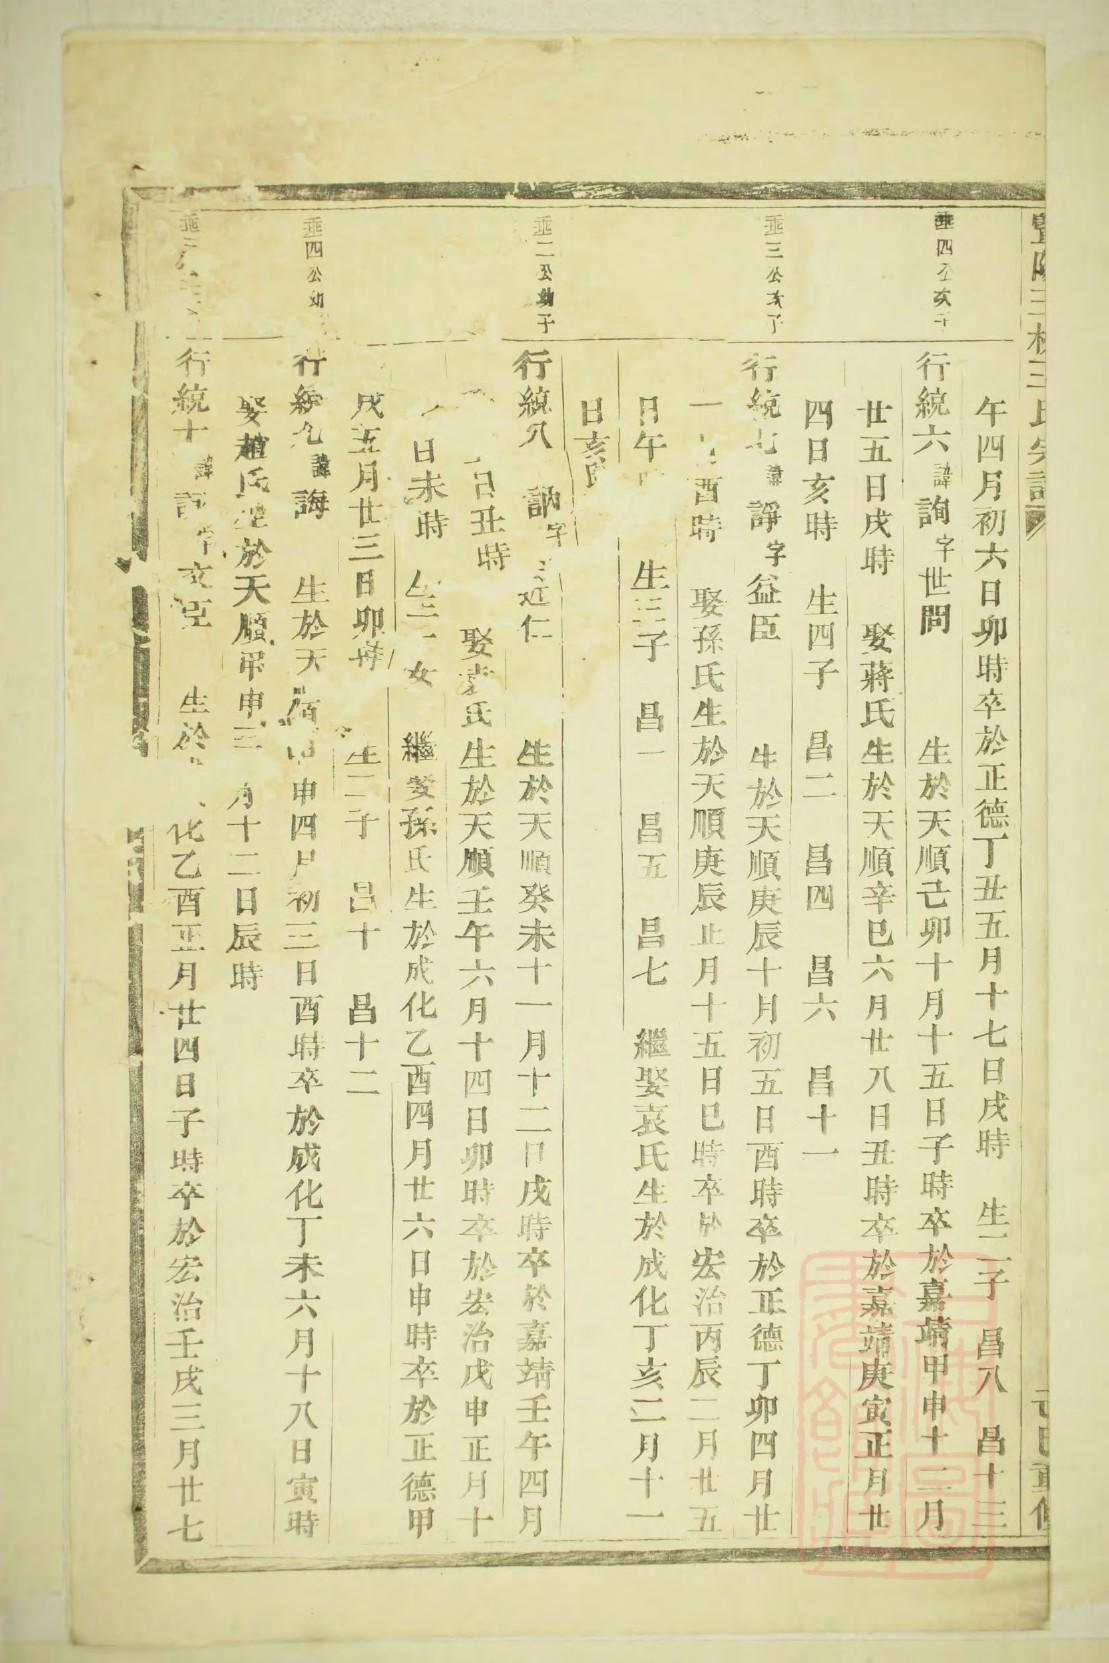 午四月初六日卯時卒於正德丁丑五月十七日戌時 生二子 昌八 昌十三
垂四公亥子
行統六 諱詢 字世問 生於天順己卯十月十五日子時卒於嘉靖甲申十二月
廿五日戌時 娶蔣氏生於天順辛巳六月廿八日丑時卒於嘉靖庚寅正月廿
四日亥時 生四子 昌二 昌四 昌六 昌十一
垂三公亥子
行統七 諱諍 字益臣 生於天順庚辰十月初五日酉時卒於正德丁卯四月廿
酉時 娶孫氏生於天順庚辰正月十五日巳時卒於宏治丙辰二月廿五
日午 生三子 昌一 昌五 昌七 繼娶袁氏生於成化丁亥二月十一
日亥時
垂二公幼子
行統八 訥 字近仁 生於天順癸未十一月十二日戌時卒於嘉靖壬午四月
日丑時 娶袁氏生於天順壬午六月十四日卯時卒於宏治戊申正月十
日未時 生一女 繼娶孫氏生於成化乙酉四月廿六日申時卒於正德甲
戌五月廿三日卯時 生二子 昌十 昌十二
垂四公幼
行統九 諱誨 生於天順甲申四月初三日酉時卒於成化丁未六月十八日寅時
娶趙氏生於天順甲申三月十二日辰時
垂三
行統十 諱 字文臣 生於 化乙酉正月廿四日子時卒於宏治壬戌三月廿七